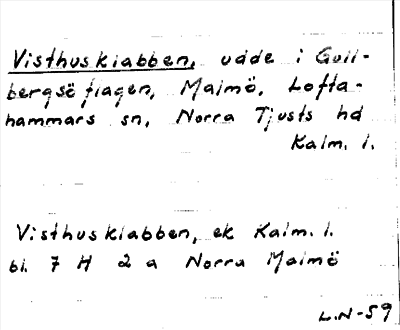 Visthusklabben, udde i Gull-
bergsö flagen, Malmö, Lofta-
hammars sn, Norra Tjusts hd
Kalm. l.
Visthusklabben, ek Kalm. l.
bl. 7 H 2 a Norra Malmö
L.N-59